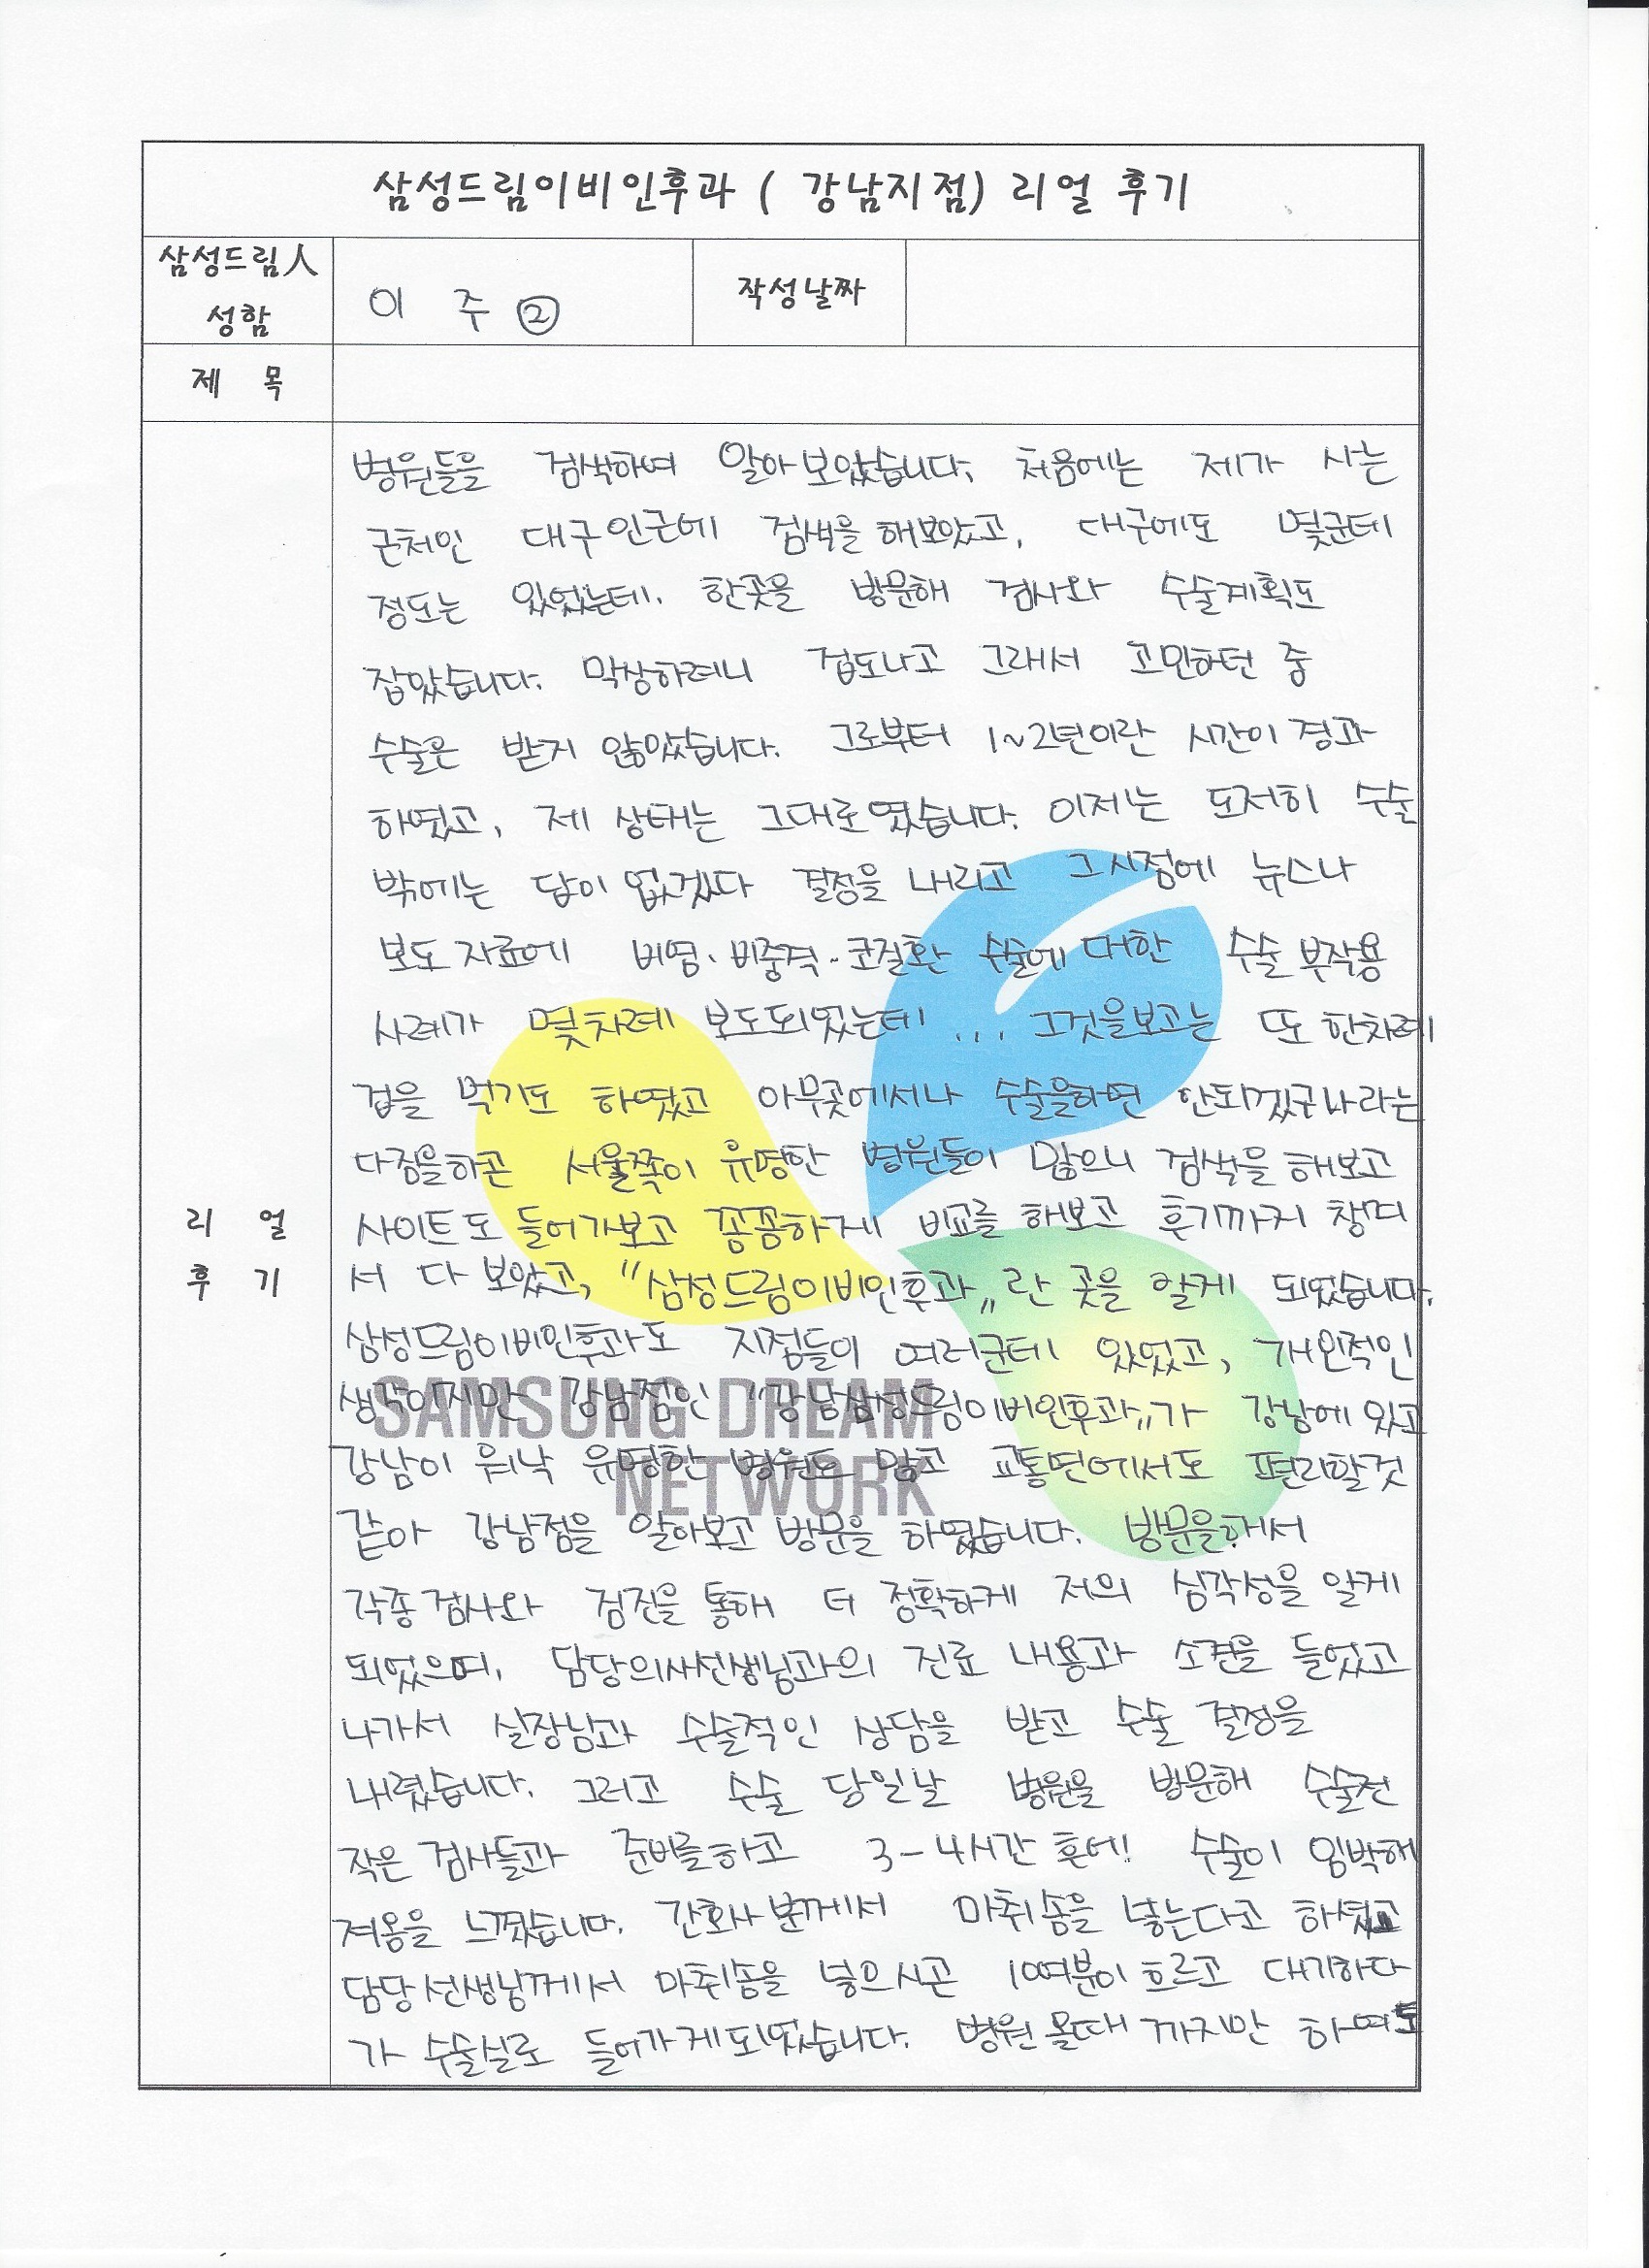 삼성드림이비인후과 ( 강남지점) 리얼 후기
삼성드림人
성함
이 주 ②
작성날짜
제 목
리 얼
후 기
병원들을 검색하여 알아보았습니다. 처음에는 제가 사는
근처인 대구인근에 검색을 해보았고, 대구에도 몇군데
정도는 있었는데. 한곳을 방문해 검사와 수술계획도
잡았습니다. 막상하려니 겁도나고 그래서 고민하던 중
수술은 받지 않았습니다. 그로부터 1~2년이란 시간이 경과
하였고, 제 상태는 그대로였습니다. 이제는 도저히 수술
밖에는 답이 없겠다 결정을 내리고 그시점에 뉴스나
보도 자료에 비염·비중격·코질환 수술에 대한 수술 부작용
사례가 몇차례 보도되었는데 ... 그것을보고는 또 한차례
겁을 먹기도 하였고 아무곳에서나 수술을하면 안되겠구나라는
다짐을하곤 서울쪽이 유명한 병원들이 많으니 검색을 해보고
사이트도 들어가보고 꼼꼼하게 비교를 해보고 후기까지 챙겨
서 다 보았고, "삼성드림이비인후과" 란 곳을 알게 되었습니다.
삼성드림이비인후과도 지점들이 여러군데 있었고, 개인적인
생각이지만 강남점인 "강남삼성드림이비인후과"가 강남에 있고
강남이 워낙 유명한 병원도 많고 교통면에서도 편리할것
같아 강남점을 알아보고 방문을 하였습니다. 방문을해서
각종 검사와 검진을 통해 더 정확하게 저의 심각성을 알게
되었으며, 담당의사선생님과의 진료 내용과 소견을 들었고
나가서 실장님과 수술적인 상담을 받고 수술 결정을
내렸습니다. 그러고 수술 당일날 병원을 방문해 수술전
작은 검사들과 준비를하고 3-4시간 후에! 수술이 임박해
져옴을 느꼈습니다. 간호사분께서 마취솜을 넣는다고 하셨고
담당선생님께서 마취솜을 넣으시곤 10여분이 흐르고 대기하다
가 수술실로 들어가게되었습니다. 병원 올때 까지만 하여도
SAMSUNG DREAM
NETWORK